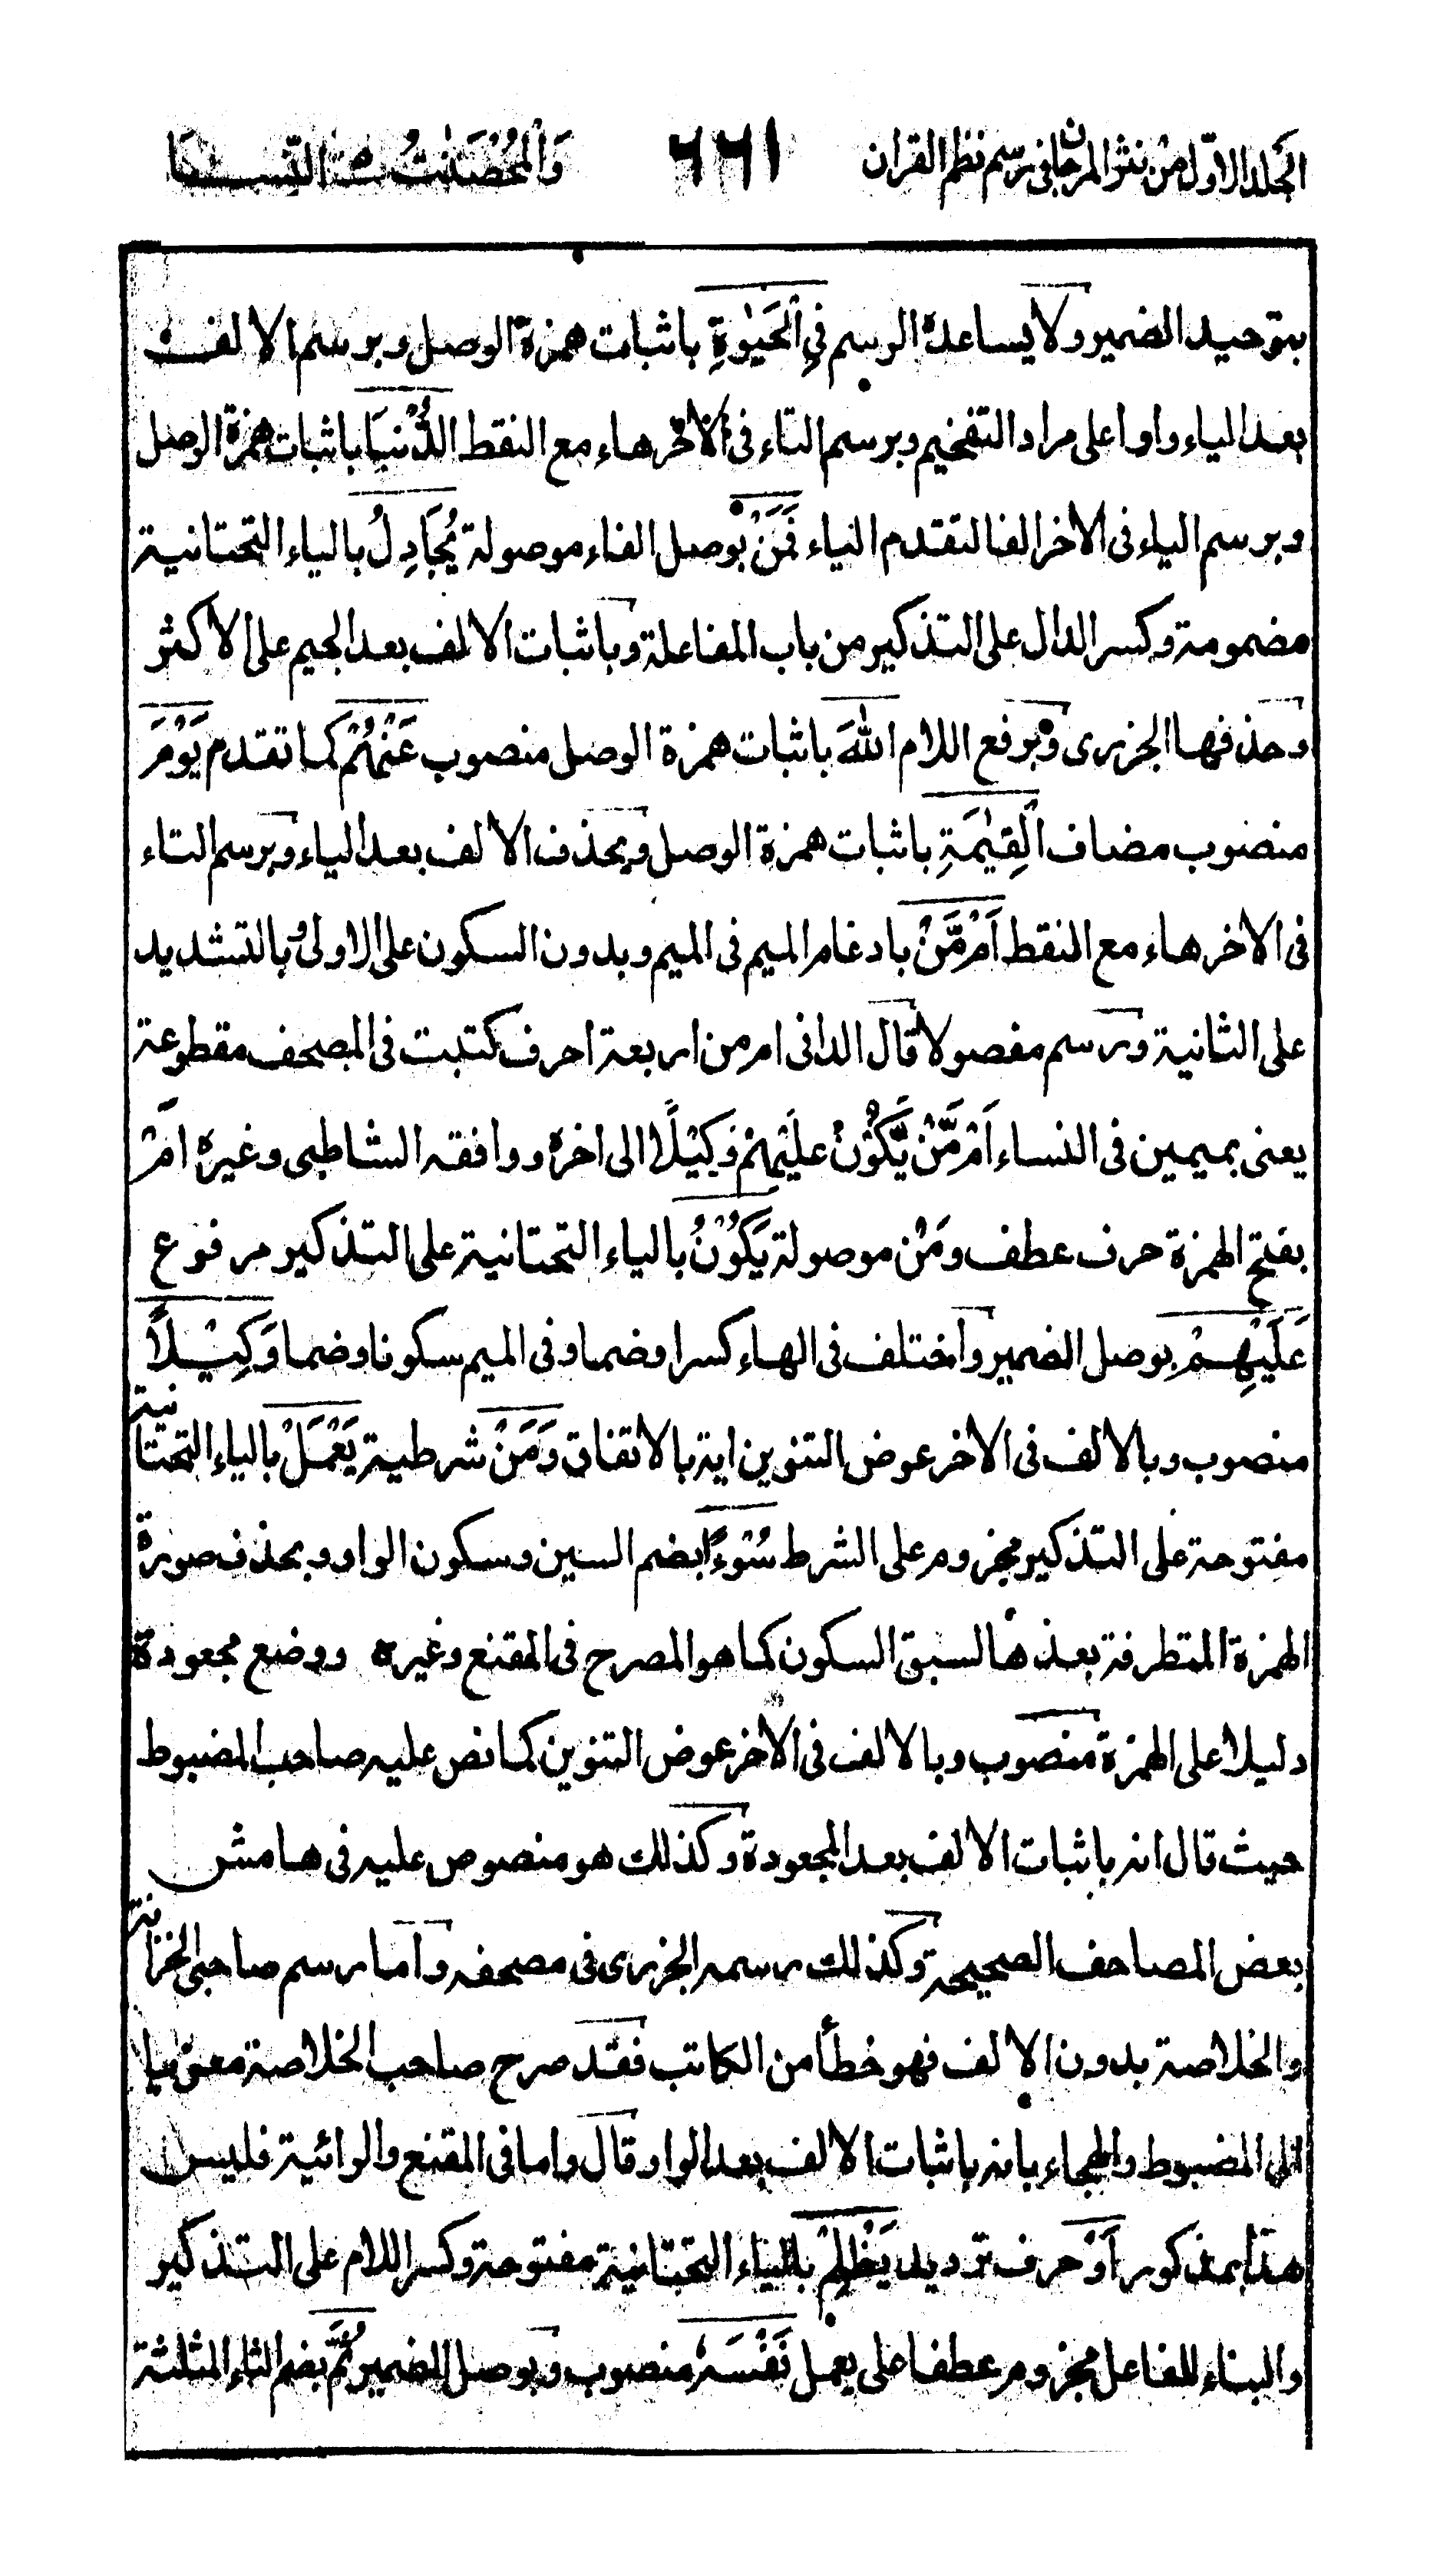 الجلد الاوّل من نثر المرجان فى رسم نظم القران ٦٦١ وَالْمُحْصَنٰتُ النِّسَــا
بتوحيد الضمير ولا يساعده الرسم فِى الْحَيٰوةِ باثبات همزة الوصل وبرسم الالف
بعد الياء واوا على مراد التفخيم وبرسم التاء فى الاخر هاء مع النقط الدُّنْيَا باثبات همزة الوصل
وبرسم الياء فى الاخر الفا لتقدم الياء فَمَنْ بوصل الفاء موصولة يُجَادِلُ بالياء التحتانية
مضمومة وكسر الدال على التذكير من باب المفاعلة وباثبات الالف بعد الجيم على الاكثر
وحذفها الجزرى وبرفع اللام اللهَ باثبات همزة الوصل منصوب عَنْهُمْ كما تقدم يَوْمَ
منصوب مضاف الْقِيٰمَةِ باثبات همزة الوصل وبحذف الالف بعد الياء وبرسم التاء
فى الاخر هاء مع النقط اَمْ مَّنْ بادغام الميم فى الميم وبدون السكون على الاولى وبالتشديد
على الثانية ورسم مفصولا قال الدانى ام من اربعة احرف كتبت فى المصحف مقطوعة
يعنى بميمين فى النساء اَمْ مَّنْ يَّكُوْنُ عَلَيْهِمْ وَكِيْلًا الى اخره ووافقه الشاطبى وغيره اَمْ
بفتح الهمزة حرف عطف ومَنْ موصولة يَكُوْنُ بالياء التحتانية على التذكير مرفوع
عَلَيْهِمْ بوصل الضمير واختلف فى الهاء كسرا وضما وفى الميم سكونا وضما وَكِيْلًا
منصوب وبالالف فى الاخر عوض التنوين اية بالاتفاق وَمَنْ شرطية يَعْمَلْ بالياء التحتانية
مفتوحة على التذكير مجزوم على الشرط سُوْءًا بضم السين وسكون الواو وبحذف صورة
الهمزة المتطرفة بعدها لسبق السكون كما هو المصرح فى المقنع وغيره ووضع مجعودة
دليلا على الهمزة منصوب وبالالف فى الاخر عوض التنوين كما نص عليه صاحب المضبوط
حيث قال انه باثبات الالف بعد المجعودة وكذلك هو منصوص عليه فى هامش
بعض المصاحف الصحيحة وكذلك رسمه الجزرى فى مصحفه واما رسم صاحبى الخزانة
والخلاصة بدون الالف فهو خطأ من الكاتب فقد صرح صاحب الخلاصة معزيا
الى المضبوط والهجاء بانه باثبات الالف بعد الواو قال واما فى المقنع والرائية فليس
هذا بمذكور اَوْ حرف ترديد يَظْلِمْ بالياء التحتانية مفتوحة وكسر اللام على التذكير
والبناء للفاعل مجزوم عطفا على يعمل نَفْسَهٗ منصوب وبوصل الضمير ثُمَّ بضم الثاء المثلثة